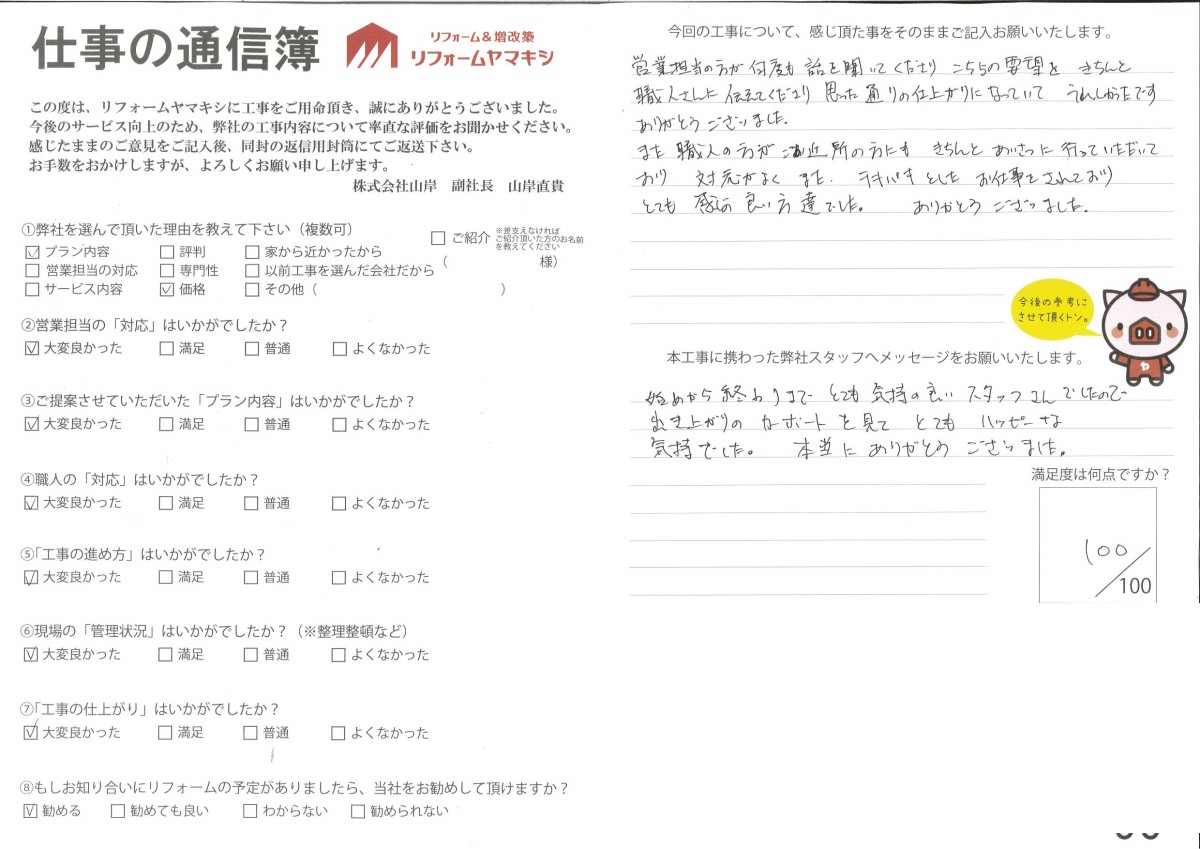 仕事の通信簿
リフォーム&増改築
リフォームヤマキシ
この度は、リフォームヤマキシに工事をご用命頂き、誠にありがとうございました。
今後のサービス向上のため、弊社の工事内容について率直な評価をお聞かせください。
感じたままのご意見をご記入後、同封の返信用封筒にてご返送下さい。
お手数をおかけしますが、よろしくお願い申し上げます。
株式会社山岸 副社長 山岸直貴
①弊社を選んで頂いた理由を教えて下さい(複数可)
☑プラン内容 □評判 □家から近かったから
□営業担当の対応 □専門性 □以前工事を選んだ会社だから
□サービス内容 ☑価格 □その他( )
□ご紹介 ※差支えなければ
ご紹介頂いた方のお名前
を教えてください
( 様)
②営業担当の「対応」はいかがでしたか?
☑大変良かった □満足 □普通 □よくなかった
③ご提案させていただいた「プラン内容」はいかがでしたか?
☑大変良かった □満足 □普通 □よくなかった
④職人の「対応」はいかがでしたか?
☑大変良かった □満足 □普通 □よくなかった
⑤「工事の進め方」はいかがでしたか?
☑大変良かった □満足 □普通 □よくなかった
⑥現場の「管理状況」はいかがでしたか?(※整理整頓など)
☑大変良かった □満足 □普通 □よくなかった
⑦「工事の仕上がり」はいかがでしたか?
☑大変良かった □満足 □普通 □よくなかった
⑧もしお知り合いにリフォームの予定がありましたら、当社をお勧めして頂けますか?
☑勧める □勧めても良い □わからない □勧められない
今回の工事について、感じ頂た事をそのままご記入お願いいたします。
営業担当の方が何度も話を聞いてくださり こちらの要望を きちんと
職人さんに伝えてくださり 思った通りの仕上がりになっていて うれしかったです
ありがとうございました。
また 職人の方が ご近所の方にも きちんと あいさつに行っていただいて
おり 対応がよく また、テキパキとした お仕事をされており
とても 感じの良い方達でした。 ありがとうございました。
今後の参考に
させて頂くトン。
ヤ
本工事に携わった弊社スタッフへメッセージをお願いいたします。
始めから終わりまで とても気持の良い スタッフさんでしたので
出き上がりの カーポートを見て とても ハッピーな
気持でした。 本当に ありがとう ございました。
満足度は何点ですか?
100
/100